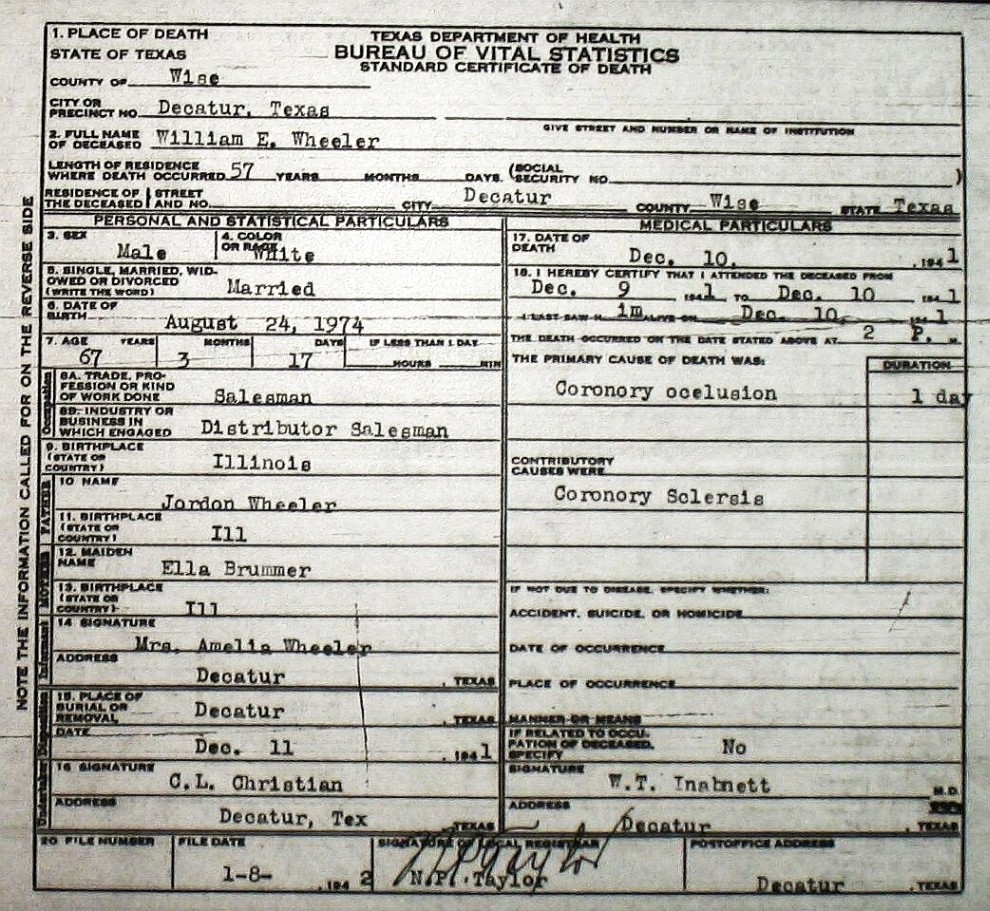 1. PLACE OF DEATH
STATE OF TEXAS
COUNTY OF Wise
TEXAS DEPARTMENT OF HEALTH
BUREAU OF VITAL STATISTICS
STANDARD CERTIFICATE OF DEATH
CITY OR PRECINCT NO. Decatur, Texas
GIVE STREET AND NUMBER OR NAME OF INSTITUTION
2. FULL NAME OF DECEASED William E. Wheeler
LENGTH OF RESIDENCE WHERE DEATH OCCURRED 57 YEARS MONTHS DAYS. (SOCIAL SECURITY NO. )
RESIDENCE OF THE DECEASED STREET AND NO. CITY Decatur COUNTY Wise STATE Texas
NOTE THE INFORMATION CALLED FOR ON THE REVERSE SIDE
PERSONAL AND STATISTICAL PARTICULARS
3. SEX Male
4. COLOR OR RACE White
5. SINGLE, MARRIED, WIDOWED OR DIVORCED (WRITE THE WORD) Married
6. DATE OF BIRTH August 24, 1974
7. AGE YEARS MONTHS DAYS IF LESS THAN 1 DAY
67 3 17 HOURS MIN
Occupation
8A. TRADE, PROFESSION OR KIND OF WORK DONE Salesman
8B. INDUSTRY OR BUSINESS IN WHICH ENGAGED Distributor Salesman
9. BIRTHPLACE (STATE OR COUNTRY) Illinois
FATHER
10 NAME Jordon Wheeler
11. BIRTHPLACE (STATE OR COUNTRY) Ill
MOTHER
12. MAIDEN NAME Ella Brummer
13. BIRTHPLACE (STATE OR COUNTRY) Ill
Informant
14 SIGNATURE Mrs. Amelia Wheeler
ADDRESS Decatur , TEXAS
Disposition
15. PLACE OF BURIAL OR REMOVAL Decatur , TEXAS
DATE Dec. 11 , 1941
Undertaker
16 SIGNATURE C.L. Christian
ADDRESS Decatur, Tex TEXAS
MEDICAL PARTICULARS
17. DATE OF DEATH Dec. 10, , 1941
18. I HEREBY CERTIFY THAT I ATTENDED THE DECEASED FROM
Dec. 9 , 1941 TO Dec. 10 , 1941
I LAST SAW H im ALIVE ON Dec. 10, 1941
THE DEATH OCCURRED ON THE DATE STATED ABOVE AT 2 P. M.
THE PRIMARY CAUSE OF DEATH WAS: DURATION
Coronory ocelusion 1 day
CONTRIBUTORY CAUSES WERE
Coronory Sclersis
IF NOT DUE TO DISEASE, SPECIFY WHETHER:
ACCIDENT, SUICIDE, OR HOMICIDE
DATE OF OCCURRENCE
PLACE OF OCCURRENCE
MANNER OR MEANS
IF RELATED TO OCCUPATION OF DECEASED, SPECIFY No
SIGNATURE W.T. Inabnett M.D.
ADDRESS Decatur , TEXAS
20 FILE NUMBER
FILE DATE 1-8- , 1942
SIGNATURE OF LOCAL REGISTRAR N.P. Taylor
N.P. Taylor
POSTOFFICE ADDRESS Decatur , TEXAS